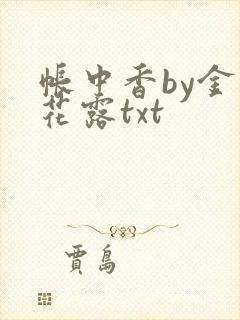 帳中香by金
花露txt
賈島